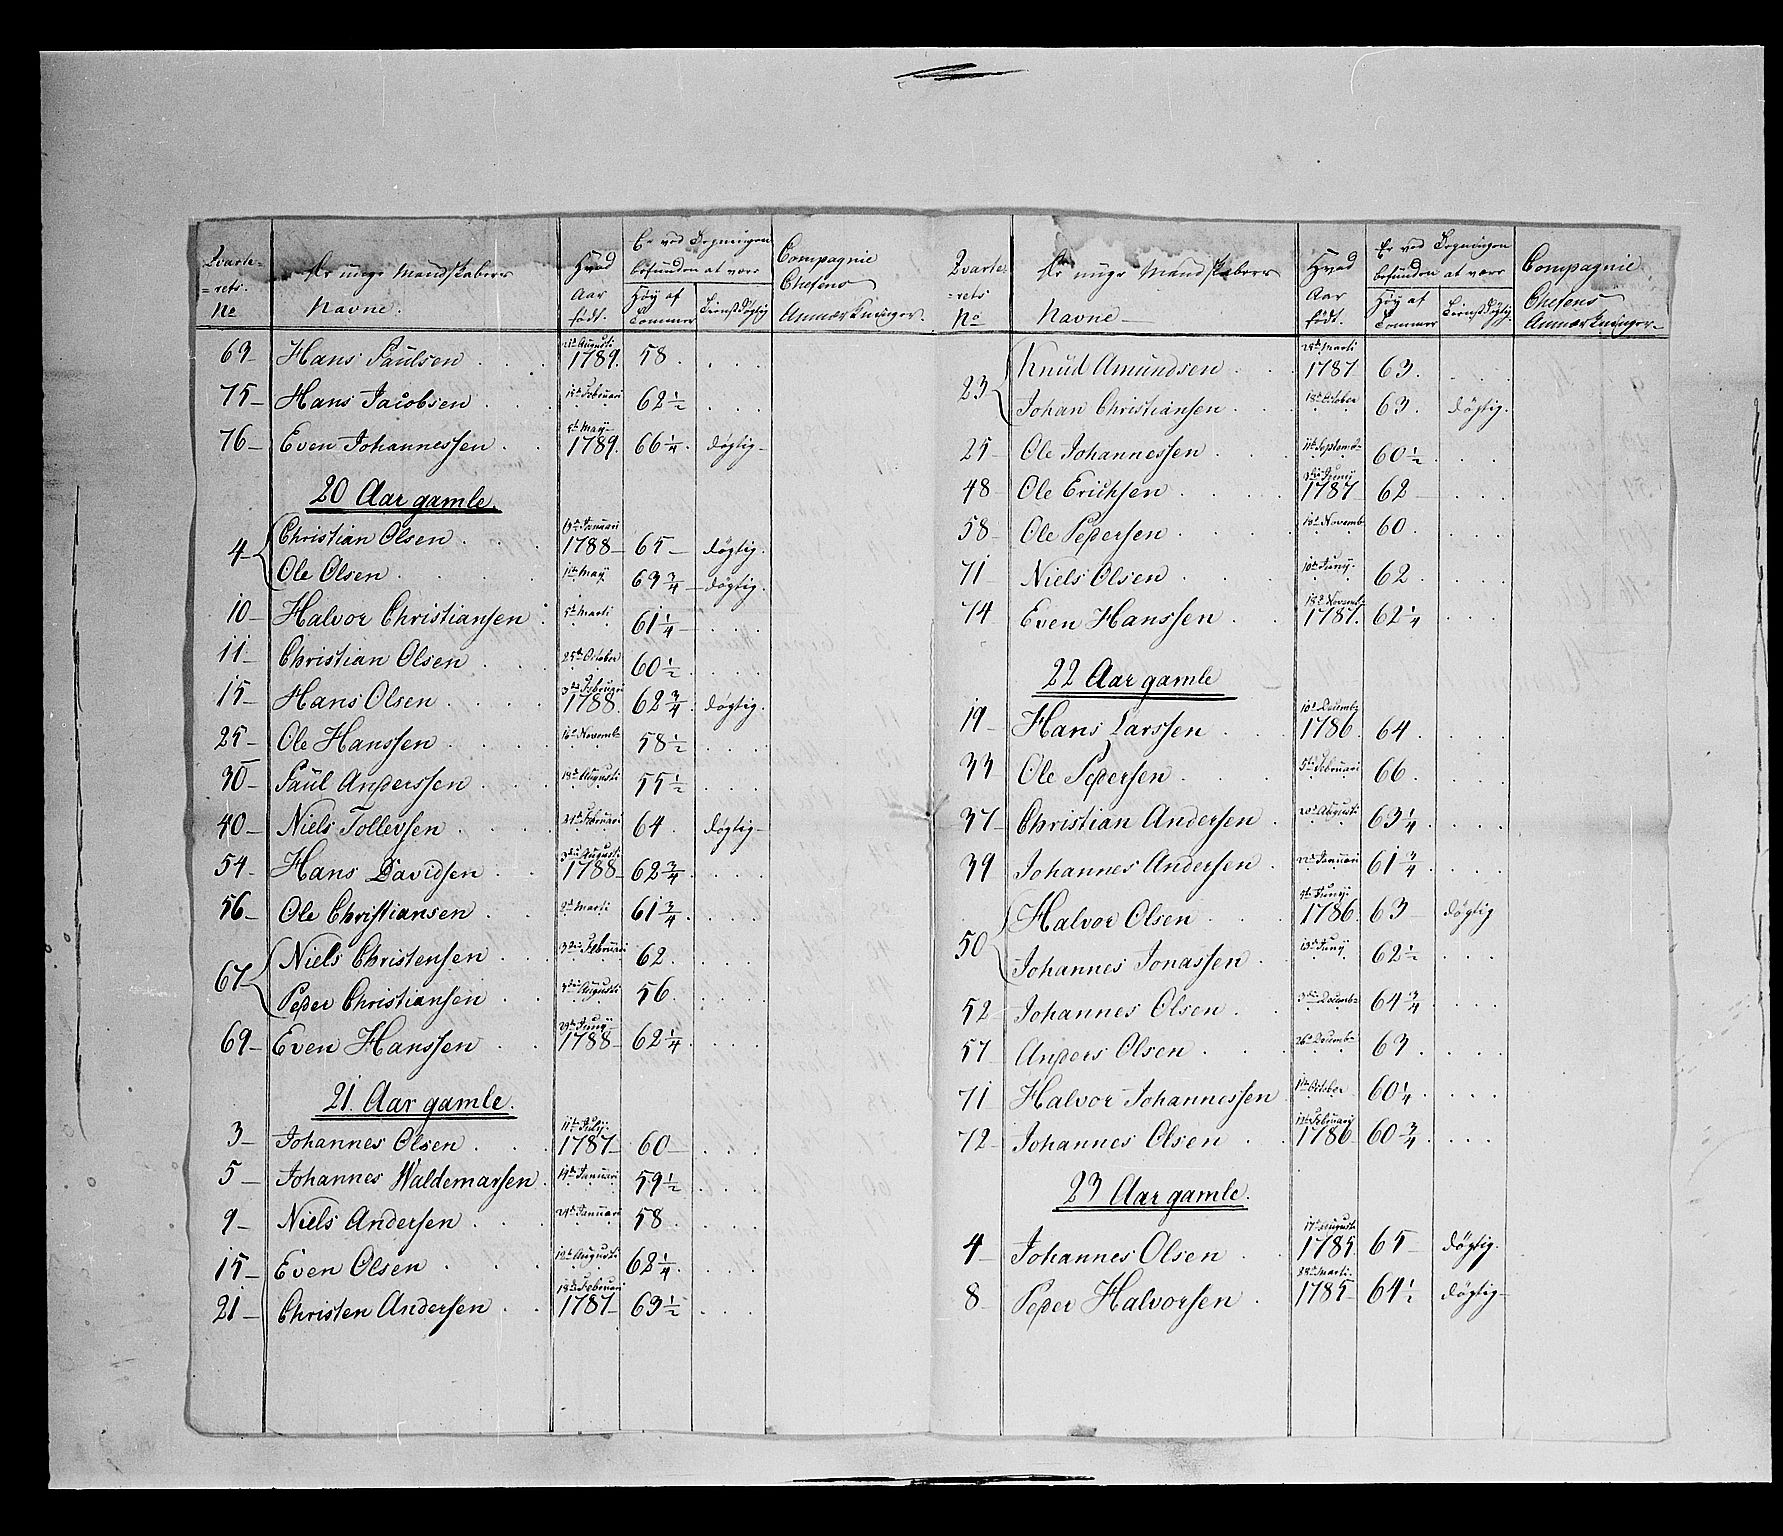 Qvarte= De unge Mandskabers Hvad Er ved Sessionen Compagnie
=rets Navne. Aar befunden at være Chefens
No født. Høy af Tommer Tienstdögtig Anmærkninger.
69 Hans Paulsen 21de Augusti 1789. 58.
75 Hans Jacobsen 18de Februari 62 1/2
76 Even Johannessen 8de May 1789. 66 1/4. dögtig
20 Aar gamle.
4 Christian Olsen 19de Januari 1788 65 dögtig.
Ole Olsen 11te May 63 3/4 dögtig.
10 Halvor Christiansen 5te Marti 61 1/4
11 Christian Olsen 25de October 60 1/2
15 Hans Olsen 3die Februari 1788. 62 3/4. dögtig.
25 Ole Hanssen 16de Novemb: 58 1/2
30 Paul Anderssen 18de Augusti 55 1/2
40 Niels Tollevsen 21de Februari 64. dögtig
54 Hans Davidsen 3die Augusti 1788 62 3/4.
56 Ole Christiansen 2de Marti 61 3/4.
67 Niels Christensen 3die Februari 62.
Peder Christiansen 3die Augusti 56.
69 Even Hanssen 29de Juny 1788 62 1/4
21. Aar gamle.
3 Johannes Olsen 11te July. 1787 60
5 Johannes Waldemarsen 14de Januari 59 1/2
9 Niels Andersen 24de Januari 58.
15 Even Olsen 19de Augusti 62 1/4.
21 Christen Andersen 18de Februari 1787 63 1/2
Qvarte= De unge Mandskabers Hvad Er ved Sessionen Compagnie
=rets Navne Aar befunden at være Chefens
No født. Høy af Tommer Tienstdögtig. Anmærkninger
23 Knud Amundsen 28de Marti 1787 63.
Johan Christiansen 18de October 63. dögtig.
25 Ole Johannessen 11te Septemb: 60 1/2
48 Ole Erichsen 3die Juny 1787 62
58 Ole Pedersen 10de Novemb: 60.
71 Niels Olsen 10de Juny. 62.
74 Even Hanssen 18de Novemb: 1787. 62 1/4
22 Aar gamle
19 Hans Larssen 10de Decemb: 1786. 64.
33 Ole Pedersen 5te Februari 66.
37 Christian Andersen 20de Augusti 63 1/4.
39 Johannes Andersen 22de Januari 61 3/4.
50 Halvor Olsen 9de Juny: 1786 63 dögtig
Johannes Jonassen 13de Juny 62 1/2
52 Johannes Olsen 3die Decemb: 64 3/4
57 Anders Olsen 26de Decemb: 63.
71 Halvor Johannessen 1ste October 60 1/4.
72 Johannes Olsen 12te Februari 1786 60 3/4.
23 Aar gamle.
4 Johannes Olsen 17de Augusti 1785 65 dögtig.
8 Peder Halvorsen 28de Marti. 1785 64 1/2 dögtig